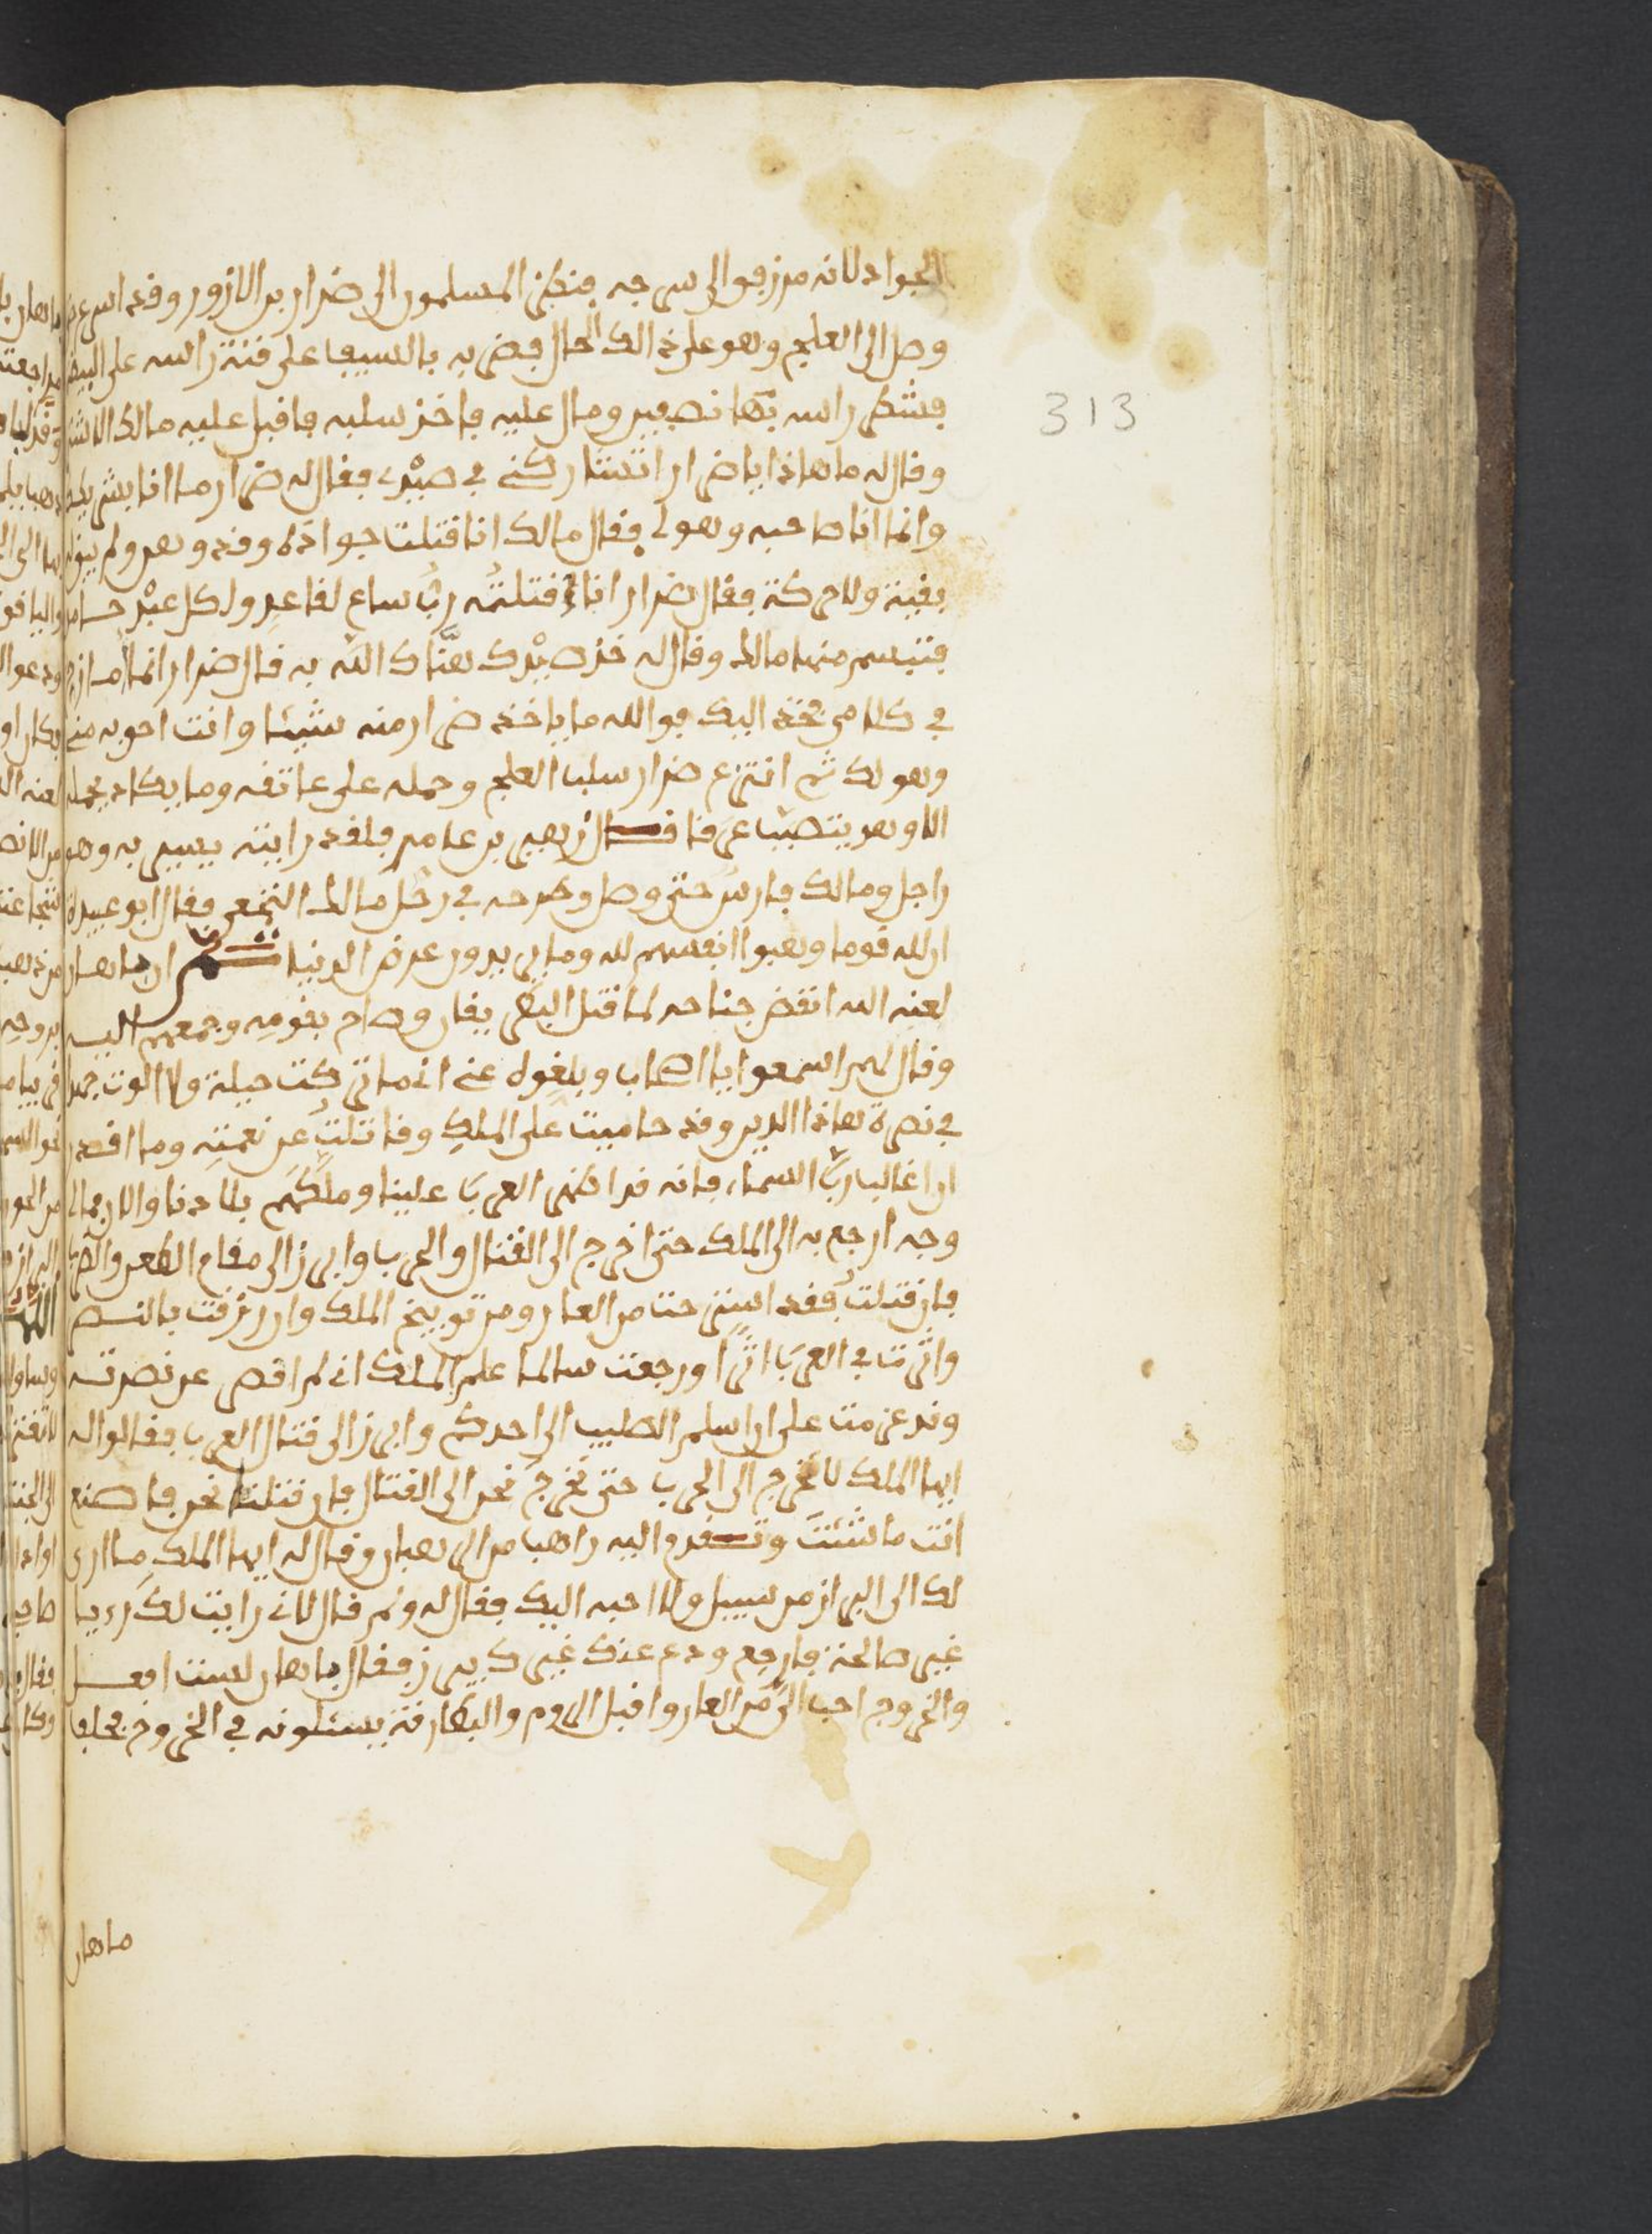 الجواد لانه مزرفوا لى سرجه فنظر المسلمون الى ضرار بن الازور وقد اسرع
وصل الى العلج وهو على ذالك الحال فضربه بالسيف على قنة راسه على البيضة
فشطر راسه بها نصفين ومال عليه فاخذ سلبه فاقبل عليه مالك الاشتر
وقال له ما هاذا يا ضرار اتشاركني في صيدي فقال له ضرار ما انا بشريك
وانما انا صاحبه وهو لي فقال مالك انا قتلت جواده وقد وهن ولم يبق له
بقية ولا حركة فقال ضرار انا قتلته رب ساع لقاعد ولكل عبد حساب
فتبسم منهما مالك وقال له خذ صيدك هناك الله به قال ضرار انما امازح
في كلامي فخذه اليك فوالله ما ياخذ ضرار منه شيئا وانت احق به مني
وهو لك ثم انتزع ضرار سلب العلج وحمله على عاتقه وما يكاد يحمله
الا وهو يتصبب عرقا قال زهير بن عامر فلقد رايته يسير به وهو
راجل ومالك فارس حتى وصل وطرحه في رحل مالك النخعي فقال ابو عبيدة
ان لله قوما وهبوا انفسهم لله وما يريدون عرض الدنيا ثم ان ماهان
لعنه الله انقض جناحه لما قتل البطريق فقام بقومه وجمعهم اليه
وقال لهم اسمعوا يا اصحاب وبلغوه عني اني ما تركت حيلة ولا الوت جهدا
في نصرة هاذا الدين وقد حاميت على الملك وقاتلت عن نعمته وما اقدر
ان اغالب رب السماء فانه قد اظهر العرب علينا وملكهم بلادنا والان مالي
وجه ارجع به الى الملك حتى اخرج الى القتال والحرب وابرز الى مقام الطعن والضرب
فان قتلت فقد استرحت من العار ومن توبيخ الملك وان رزقت بالنصر
واثرت في العرب اثرا ورجعت سالما علم الملك اني لم اقصر عن نصرته
وقد عزمت على ان اسلم الصليب الى احدكم وابرز الى قتال العرب فقالوا له
ايها الملك لا تخرج الى الحرب حتى نخرج نحن الى القتال فان قتلنا نحن فاصنع
انت ما شئت وتقدم اليه راهب من الرهبان وقال له ايها الملك ما ارى
لك الى البراز من سبيل ولا احبه اليك فقال له ولم قال لاني رايت لك رءيا
غير صالحة فارجع ودع عنك غيرك يبرز فقال ماهان لست افعل
والخروج احب الي من العار واقبل الروم والبطارقة يسئلونه في الخروج فحلف
ماهان
313